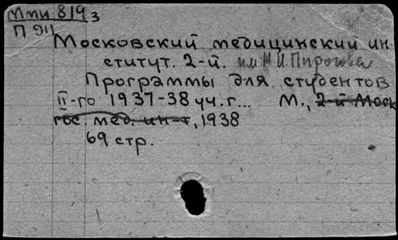 Мми 819з
П 911
Московский медицинский ин-
ститут. 2-й. им Н.И.Пирогова
Программы для студентов
II-го 1937-38 уч.г... М., 2-й Моск
гос. мед. ин-т, 1938
69 стр.